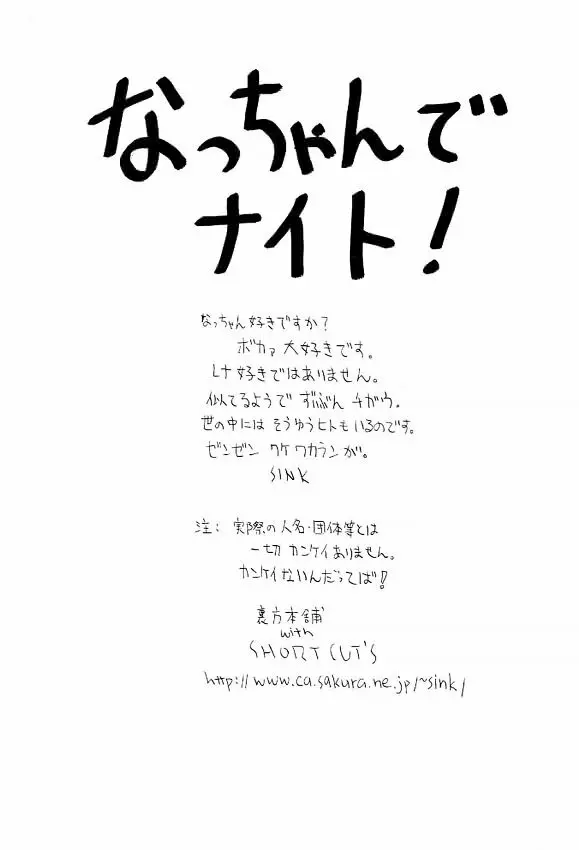 なっちゃんで
ナイト!
なっちゃん好きですか?
ボカァ 大好きです。
Lナ好きではありません。
似てるようで ずいぶん チガウ.
世の中には そうゆうヒトもいるのです。
ゼンゼン ワケワカランが。
SINK
注: 実際の人名・団体等とは
一切 カンケイありません。
カンケイないんだってば!
裏方本舗
with
SHORT CUT'S
http://www.ca.sakura.ne.jp/~sink/